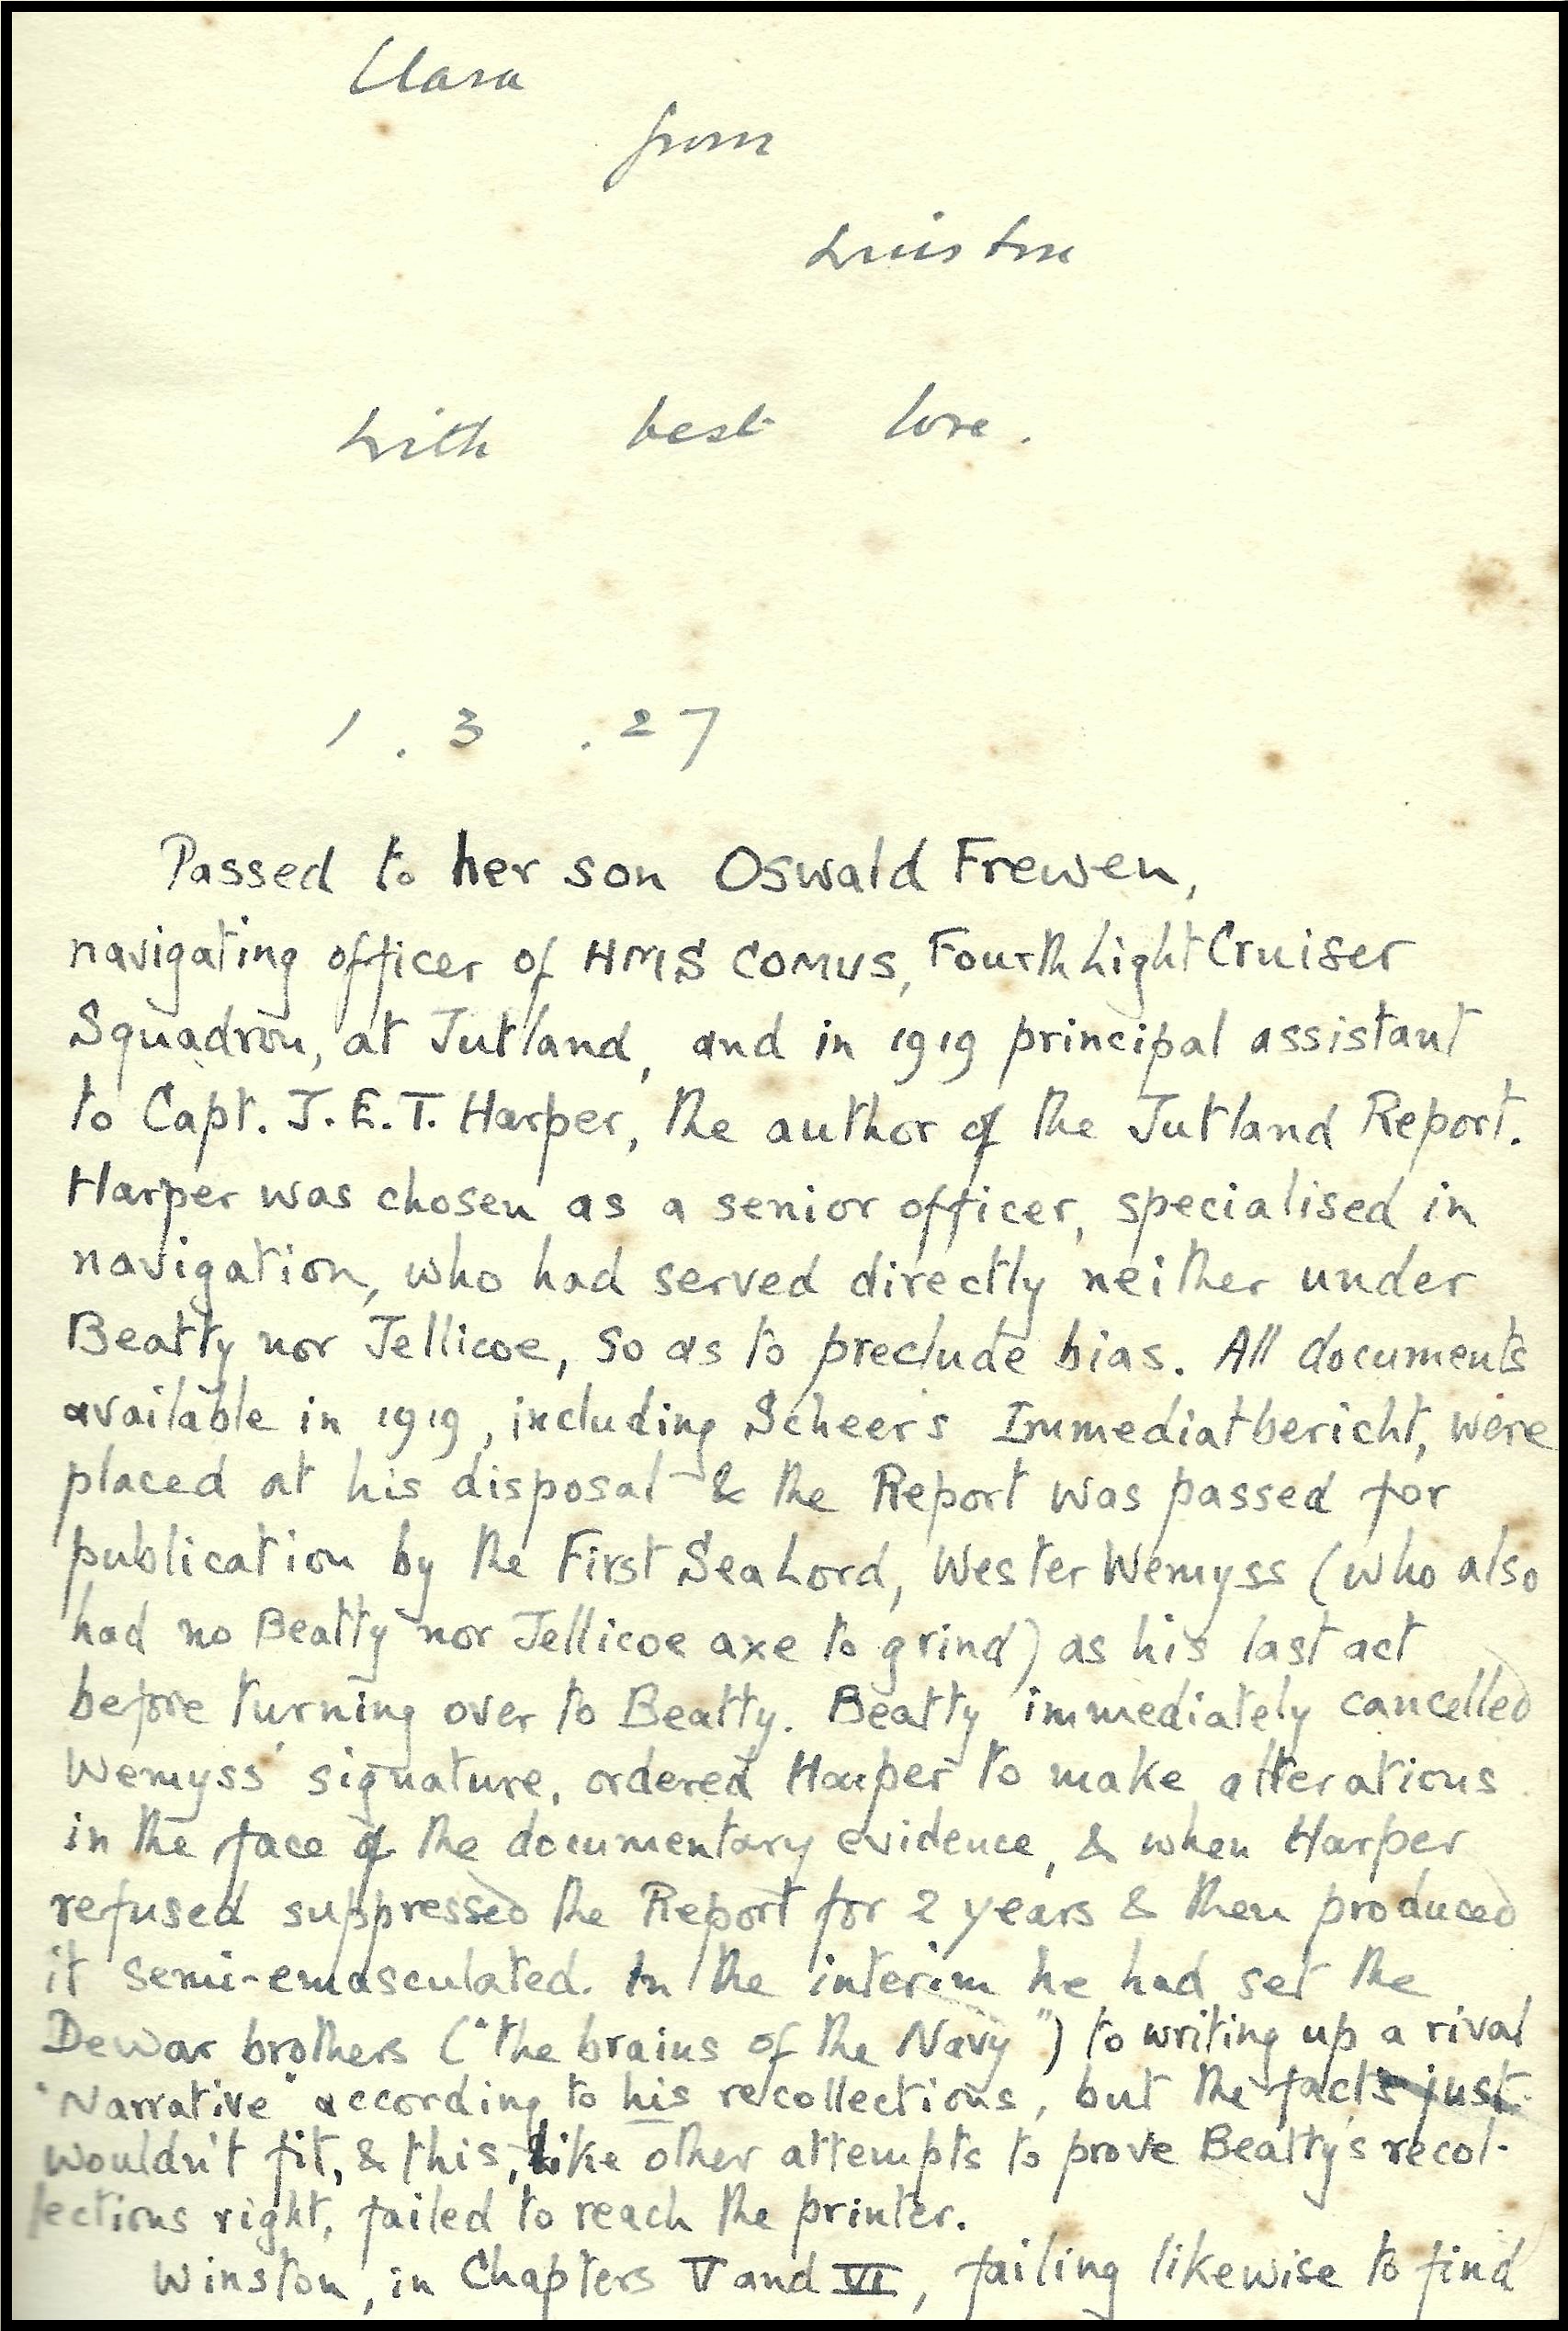 Clara
from
Winston
with best love.
1 . 3 . 27
Passed to her son Oswald Frewen,
navigating officer of HMS COMUS, Fourth Light Cruiser
Squadron, at Jutland, and in 1919 principal assistant
to Capt. J.E.T. Harper, the author of the Jutland Report.
Harper was chosen as a senior officer, specialised in
navigation, who had served directly neither under
Beatty nor Jellicoe, so as to preclude bias. All documents
available in 1919, including Scheer's Immediatbericht, were
placed at his disposal & the Report was passed for
publication by the First Sea Lord, Wester Wemyss (who also
had no Beatty nor Jellicoe axe to grind) as his last act
before turning over to Beatty. Beatty immediately cancelled
Wemyss' signature, ordered Harper to make alterations
in the face of the documentary evidence, & when Harper
refused suppressed the Report for 2 years & then produced
it semi-emasculated. In the interim he had set the
Dewar brothers ("the brains of the Navy") to writing up a rival
"Narrative" according to his recollections, but the facts just
wouldn't fit, & this, like other attempts to prove Beatty's recol-
lections right, failed to reach the printer.
Winston, in Chapters V and VI, failing likewise to find